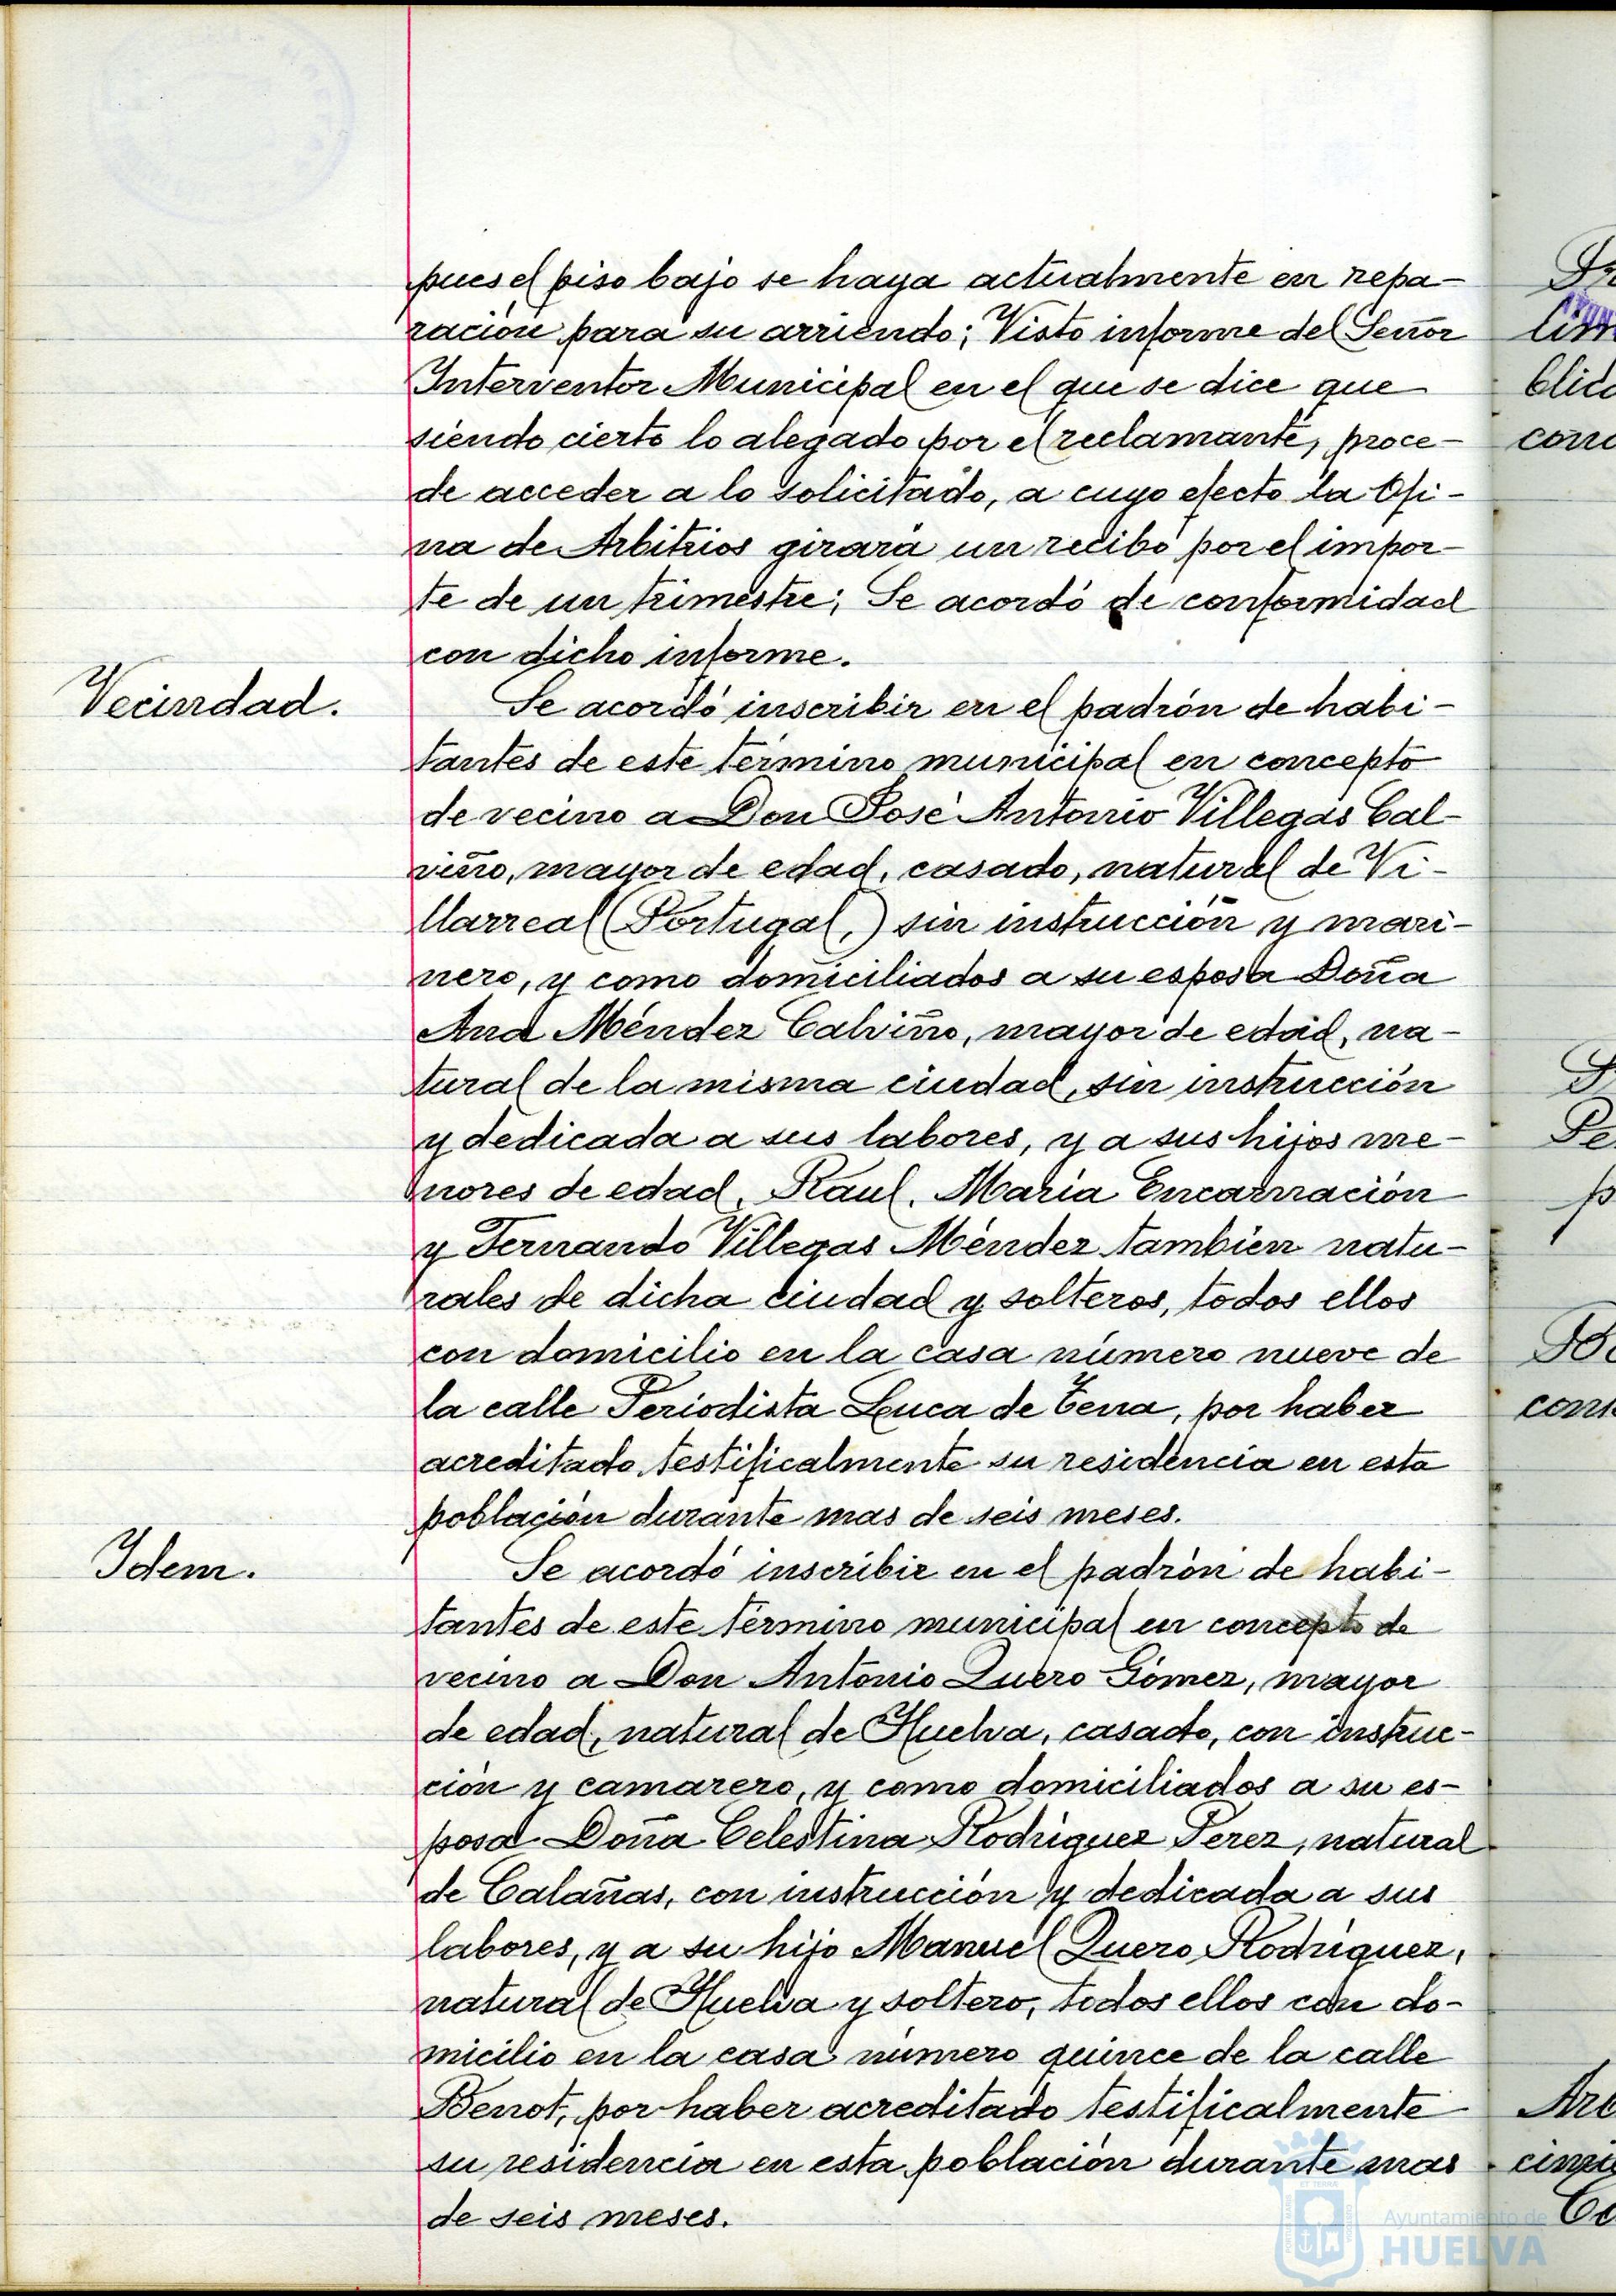 pues el piso bajo se haya actualmente en repa-
ración para su arriendo; Visto informe del Señor
Interventor Municipal en el que se dice que
siendo cierto lo alegado por el reclamante, proce-
de acceder a lo solicitado, a cuyo efecto la Ofi-
na de Arbitrios girará un recibo por el impor-
te de un trimestre; Se acordó de conformidad
con dicho informe.
Vecindad.
Se acordó inscribir en el padrón de habi-
tantes de este término municipal en concepto
de vecino a Don José Antonio Villegas Cal-
viño, mayor de edad, casado, natural de Vi-
llarreal (Portugal,) sin instrucción y mari-
nero, y como domiciliados a su esposa Doña
Ana Méndez Calviño, mayor de edad, na-
tural de la misma ciudad, sin instrucción
y dedicada a sus labores, y a sus hijos me-
nores de edad, Raul, María Encarnación
y Fernando Villegas Méndez tambien natu-
rales de dicha ciudad y solteros, todos ellos
con domicilio en la casa número nueve de
la calle Periodista Luca de Tena, por haber
acreditado testificalmente su residencia en esta
población durante mas de seis meses.
Idem.
Se acordó inscribir en el padrón de habi-
tantes de este término municipal en concepto de
vecino a Don Antonio Quero Gómez, mayor
de edad, natural de Huelva, casado, con instruc-
ción y camarero, y como domiciliados a su es-
posa Doña Celestina Rodríguez Perez, natural
de Calañas, con instrucción y dedicada a sus
labores, y a su hijo Manuel Quero Rodríguez,
natural de Huelva y soltero, todos ellos con do-
micilio en la casa número quince de la calle
Benot, por haber acreditado testificalmente
su residencia en esta población durante mas
de seis meses.
Ayuntamiento de
HUELVA